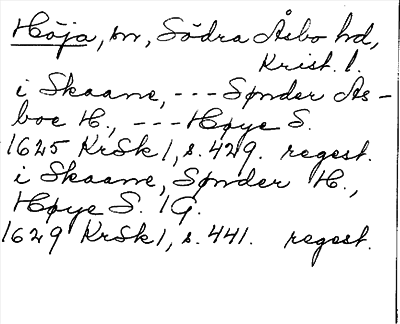 Höja, sn, Södra Åsbo hd,
Krist. l.
i Skaane, --- Sønder As-
boe H., --- Høye S.
1625 KrSk1, s. 429. regest.
i Skaane, Sønder H.,
Høye S. 1G.
1629 KrSk1, s. 441. regest.